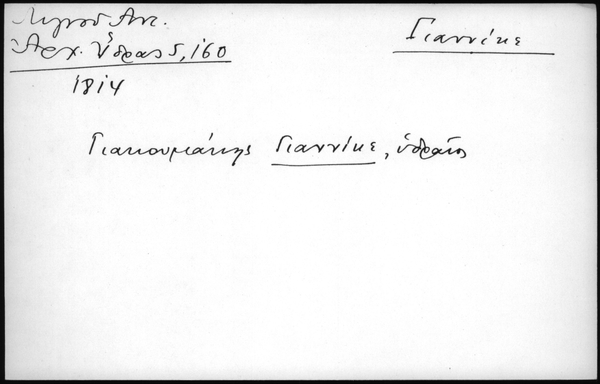 Λιγνοῦ Ἀντ.
Ἀρχ. Ὕδρας 5, 160
1814
Γιαννίκε
Γιακουμάκης Γιαννίκε, ὑδραῖος